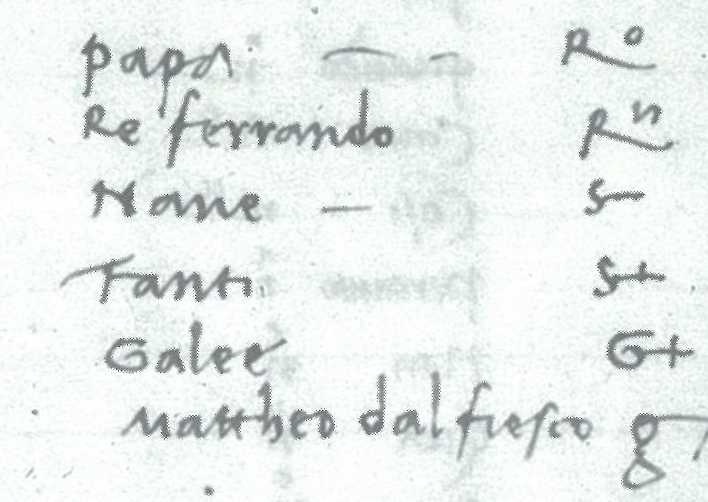 papa — — R°
Re ferrando Rn
Nave — S—
Fanti S+
Galee G+
Mattheo dal fiesco g